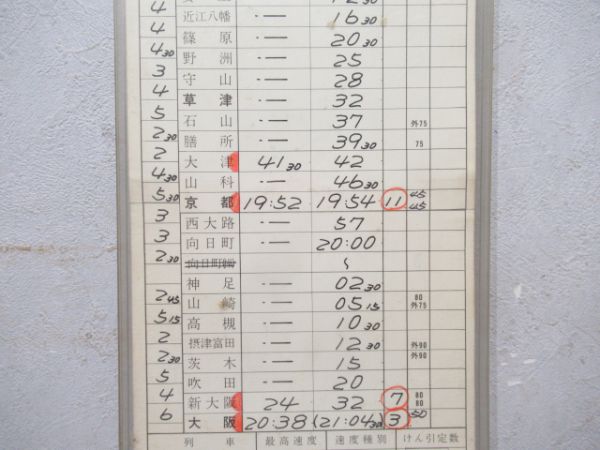 4 近江八幡 ・— 16 30
4 篠原 ・— 20 30
4 30 野洲 ・— 25
3 守山 ・— 28
4 草津 ・— 32
5 石山 ・— 37 外75
2 30 膳所 ・— 39 30 75
2 大津 41 30 42
4 30 山科 ・— 46 30
5 30 京都 19:52 19:54 11 45 45
3 西大路 ・— 57
3 向日町 ・— 20:00
2 30 〜
神足 ・— 02 30
2 45 山崎 ・— 05 15 80 外75
5 15 高槻 ・— 10 30
2 摂津富田 ・— 12 30 外90
2 30 茨木 ・— 15 外90
5 吹田 ・— 20
4 新大阪 24 32 7 80 80
6 大阪 20:38 (21:04 30 3 50
列車 最高速度 速度種別 けん引定数